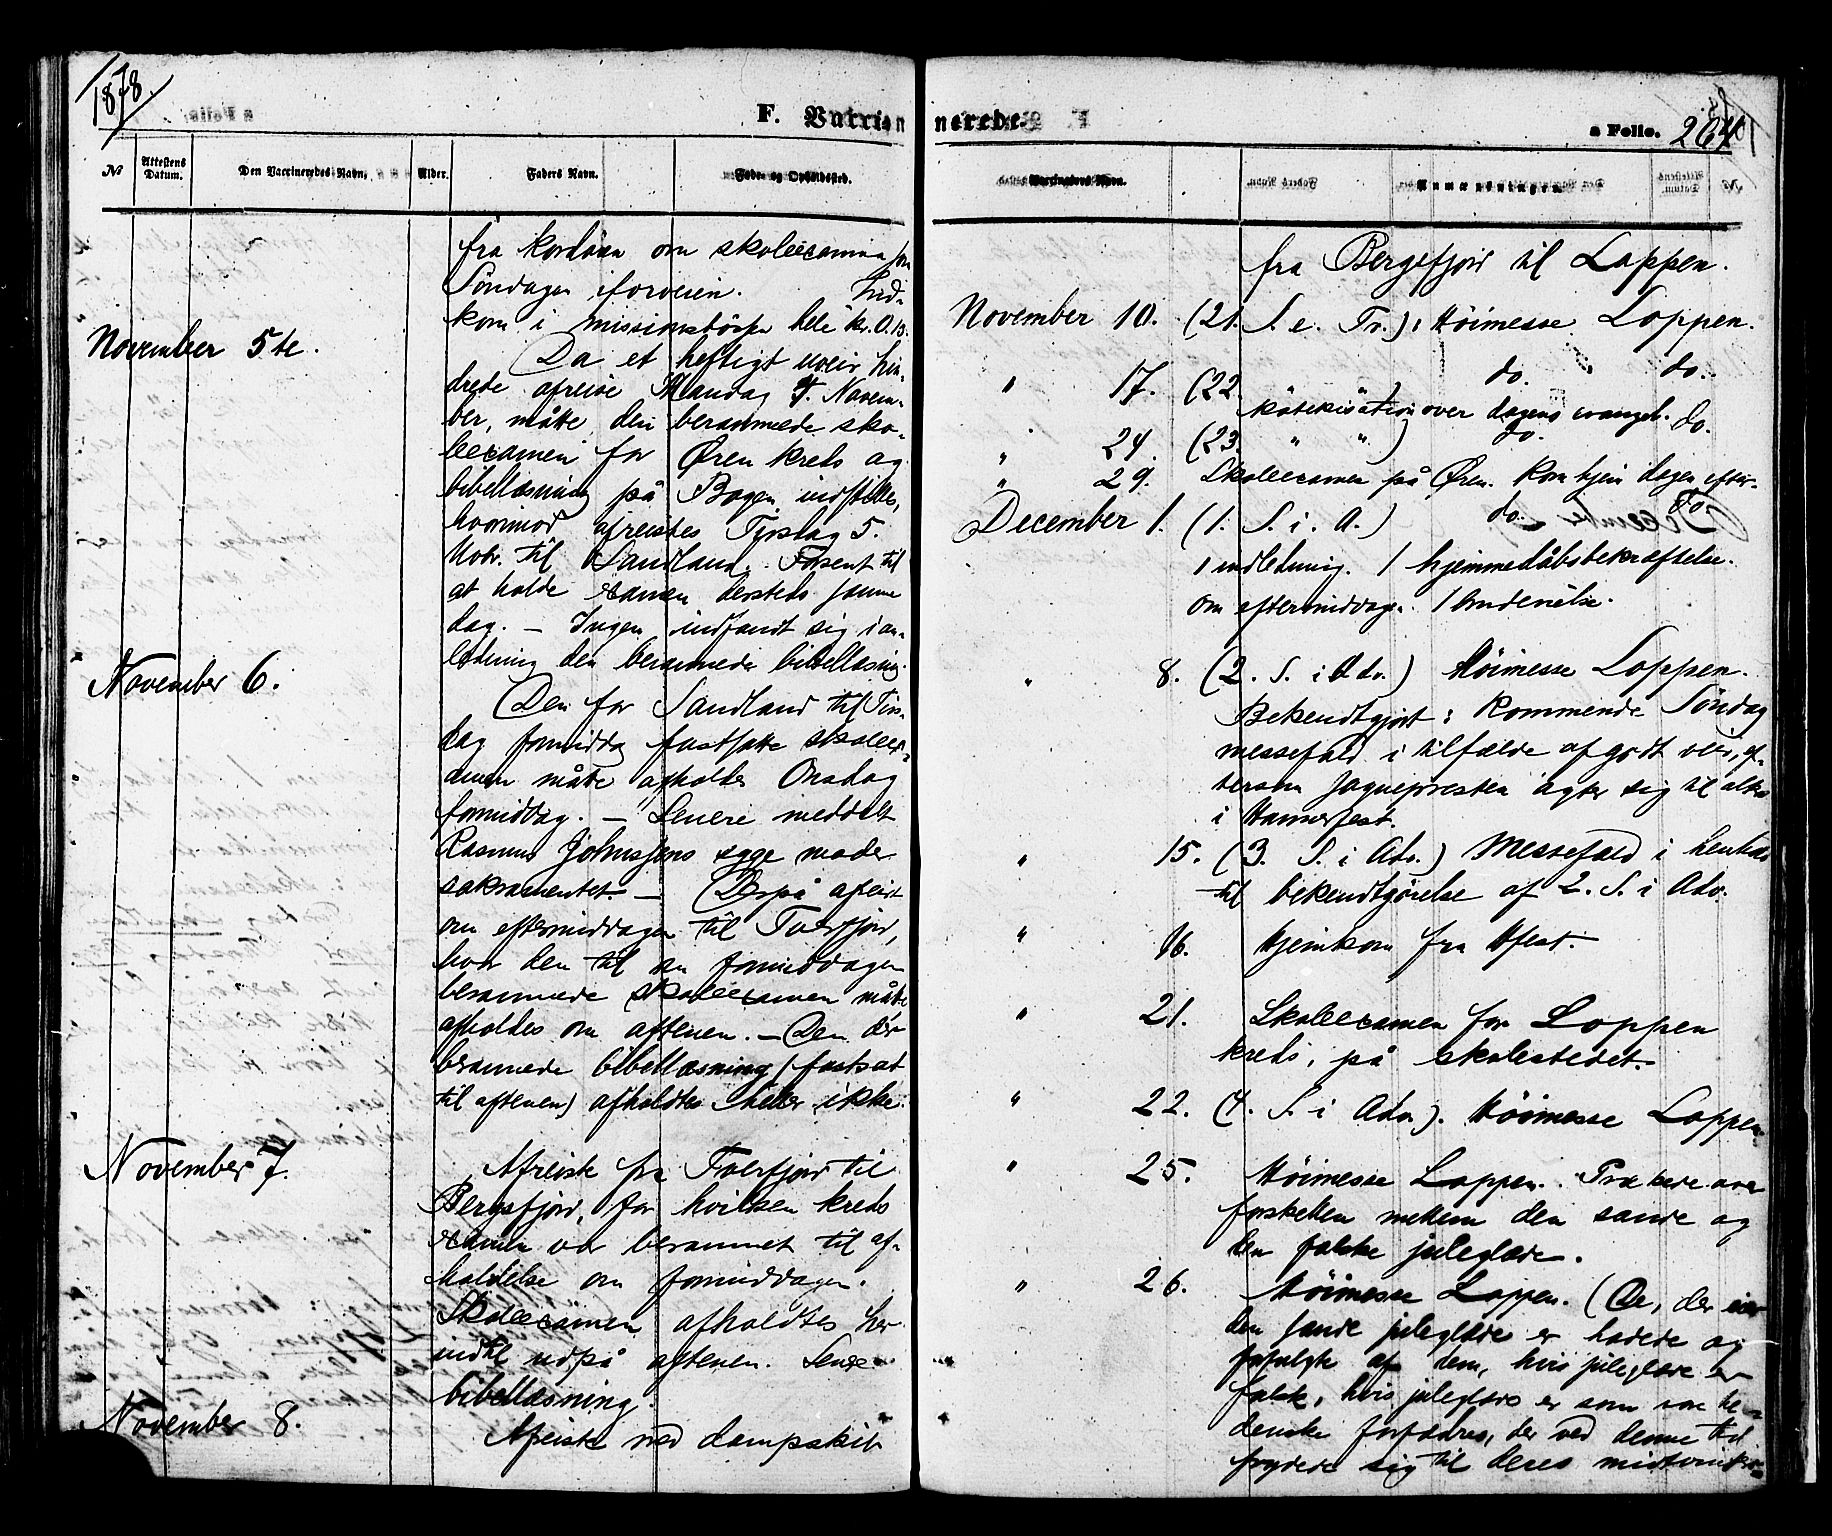 1878.
F. Vaccinerede.
a Folio. 264
№ Attestens Datum. Den Vaccineredes Navn. Alder. Faders Navn. Føde- og Opholdssted.
Vaccinateurs Navn. Anmærkninger.
fra kordøren om skoleexamina
Søndagen iforveien. Ind-
kom i missionsbössen hele kr. 0.13.
November 5te.
Da et heftigt uveir hin-
drede afreise Mandag 4. Novem-
ber, måtte den berammede sko-
leexamen for Øren kreds og
bibellæsning på Bogen indstilles,
hvorimod afreistes Tirsdag 5.
Novr. til Sandland. Forsent til
at holde examen dersteds samme
dag. — Ingen indfandt sig i an-
ledning den berammede bibellæsning.
November 6.
Den for Sandland til Tirs-
dag formiddag fastsatte skoleex-
amen måtte afholdes Onsdag
formiddag. — Senere meddelt
Rasmus Johnsens syge moder
sakramentet. — Derpå afreist
om eftermiddagen til Tverfjord,
hvor den til om formiddagen
berammede skoleexamen måtte
afholdes om aftenen. — Den der
berammede bibellæsning (fastsat
til aftenen) afholdtes heller ikke.
November 7.
Afreiste fra Tverfjord til
Bergsfjord, for hvilken kreds
examen var berammet til af-
holdelse om formiddagen.
Skoleexamen afholdtes her
indtil udpå aftenen. Senere
bibellæsning.
November 8.
Afreiste med dampskib
fra Bergsfjord til Loppen.
November 10. (21. S. e. Tr.): Höimesse Loppen.
" 17. (22. " " ) do. do.
katekisation over dagens evangel.
" 24. (23. " " ) do. do.
" 29. Skoleexamen på Øren. Kom hjem dagen efter.
December 1. (1. S. i. A.) do. do.
1 indledning. 1 hjemmedåbsbekræftelse.
Om eftermiddagen 1 brudevielse.
" 8. (2. S. i Adv.) Höimesse Loppen.
Bekendtgjort: Kommende Söndag
messefald i tilfælde af godt veir, ef-
tersom sognepresten agter sig til alters
i Hammerfest.
" 15. (3. S. i Adv.) Messefald i henhold
til bekendtgörelse af 2. S. i Adv.
" 16. Hjemkom fra Hfest.
" 21. Skoleexamen for Loppen
kreds, på skolestedet.
" 22. (4. S. i Adv.). Höimesse Loppen.
" 25. Höimesse Loppen. Præken over
forskellen mellem den sande og
den falske juleglæde.
" 26. Höimesse Loppen. (De, der eier
den sande juleglæde er hadede og
forfulgte af dem, hvis juleglæde er
falsk, hvis juleglæde er som vore he-
denske forfædres, der ved denne tid
frydede sig til deres midtvinters-